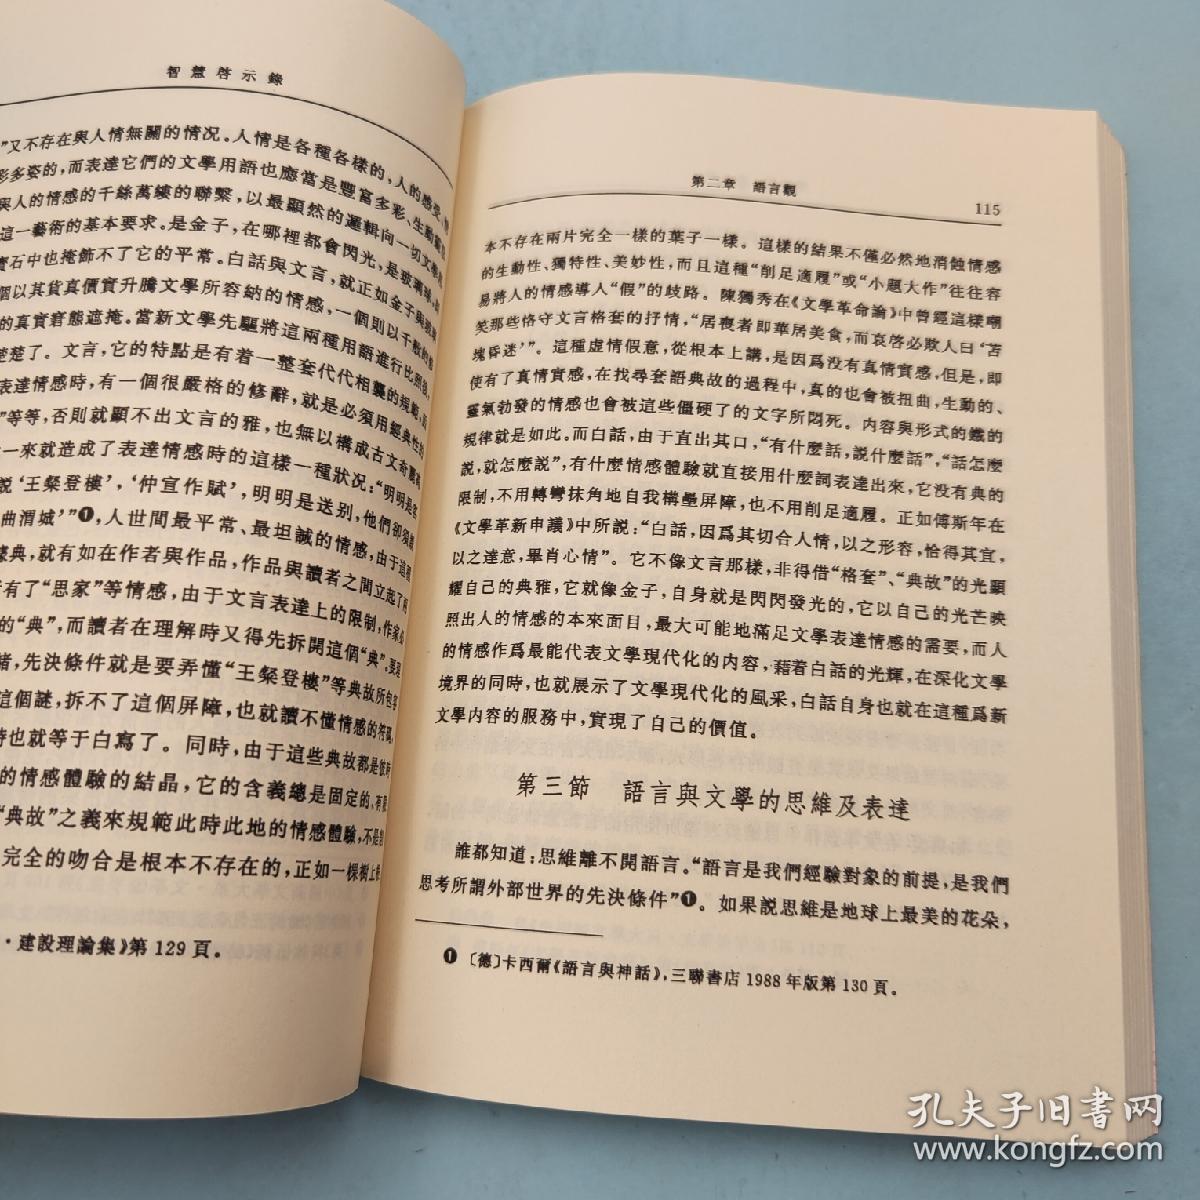 智慧啓示錄
”又不存在與人情無關的情況。人情是各種各樣的,人的感受、
彩多姿的,而表達它們的文學用語也應當是豐富多彩、生動
與人的情感的千絲萬縷的聯繫,以最顯然的邏輯向一切文學
這一藝術的基本要求。是金子,在哪裡都會閃光,是玻璃球,
寶石中也掩飾不了它的平常。白話與文言,就正如金子與玻璃
個以其貨真價實升騰文學所容納的情感,一個則以千般的
的真實窘態遮掩。當新文學先驅將這兩種用語進行比照後,
楚楚了。文言,它的特點是有着一整套代代相襲的規範,
表達情感時,有一個很嚴格的修辭,就是必須用經典性的
”等等,否則就顯不出文言的雅,也無以構成古文奇麗
一來就造成了表達情感時的這樣一種狀況:“明明是
説‘王粲登樓’,‘仲宣作賦’,明明是送别,他們卻須
曲渭城’”❶,人世間最平常、最坦誠的情感,由于這種
典,就有如在作者與作品,作品與讀者之間立起了
有了“思家”等情感,由于文言表達上的限制,作家必
的“典”,而讀者在理解時又得先拆開這個“典”,要
先決條件就是要弄懂“王粲登樓”等典故所包容
這個謎,拆不了這個屏障,也就讀不懂情感的符碼,
時也就等于白寫了。同時,由于這些典故都是彼時
的情感體驗的結晶,它的含義總是固定的、有限
“典故”之義來規範此時此地的情感體驗,不是
完全的吻合是根本不存在的,正如一棵樹上
·建設理論集》第129頁。
第二章 語言觀
115
本不存在兩片完全一樣的葉子一樣。這樣的結果不僅必然地消蝕情感
的生動性、獨特性、美妙性,而且這種“削足適履”或“小題大作”往往容
易將人的情感導人“假”的歧路。陳獨秀在《文學革命論》中曾經這樣嘲
笑那些恪守文言格套的抒情,“居喪者即華居美食,而哀啓必欺人曰‘苫
塊昏迷’”。這種虚情假意,從根本上講,是因爲没有真情實感,但是,即
使有了真情實感,在找尋套語典故的過程中,真的也會被扭曲,生動的、
靈氣勃發的情感也會被這些僵硬了的文字所悶死。内容與形式的鐵的
規律就是如此。而白話,由于直出其口,“有什麼話,説什麼話”,“話怎麼
説,就怎麼説”,有什麼情感體驗就直接用什麼詞表達出來,它没有典的
限制,不用轉彎抹角地自我構壘屏障,也不用削足適履。正如傅斯年在
《文學革新申議》中所説:“白話,因爲其切合人情,以之形容,恰得其宜,
以之達意,畢肖心情”。它不像文言那樣,非得借“格套”、“典故”的光顯
耀自己的典雅,它就像金子,自身就是閃閃發光的,它以自己的光芒映
照出人的情感的本來面目,最大可能地滿足文學表達情感的需要,而人
的情感作爲最能代表文學現代化的内容,藉着白話的光輝,在深化文學
境界的同時,也就展示了文學現代化的風采,白話自身也就在這種爲新
文學内容的服務中,實現了自己的價值。
第三節 語言與文學的思維及表達
誰都知道:思維離不開語言。“語言是我們經驗對象的前提,是我們
思考所謂外部世界的先決條件”❶。如果説思維是地球上最美的花朵,
❶ 〔德〕卡西爾《語言與神話》,三聯書店1988年版第130頁。
孔夫子旧书网
www.kongfz.com